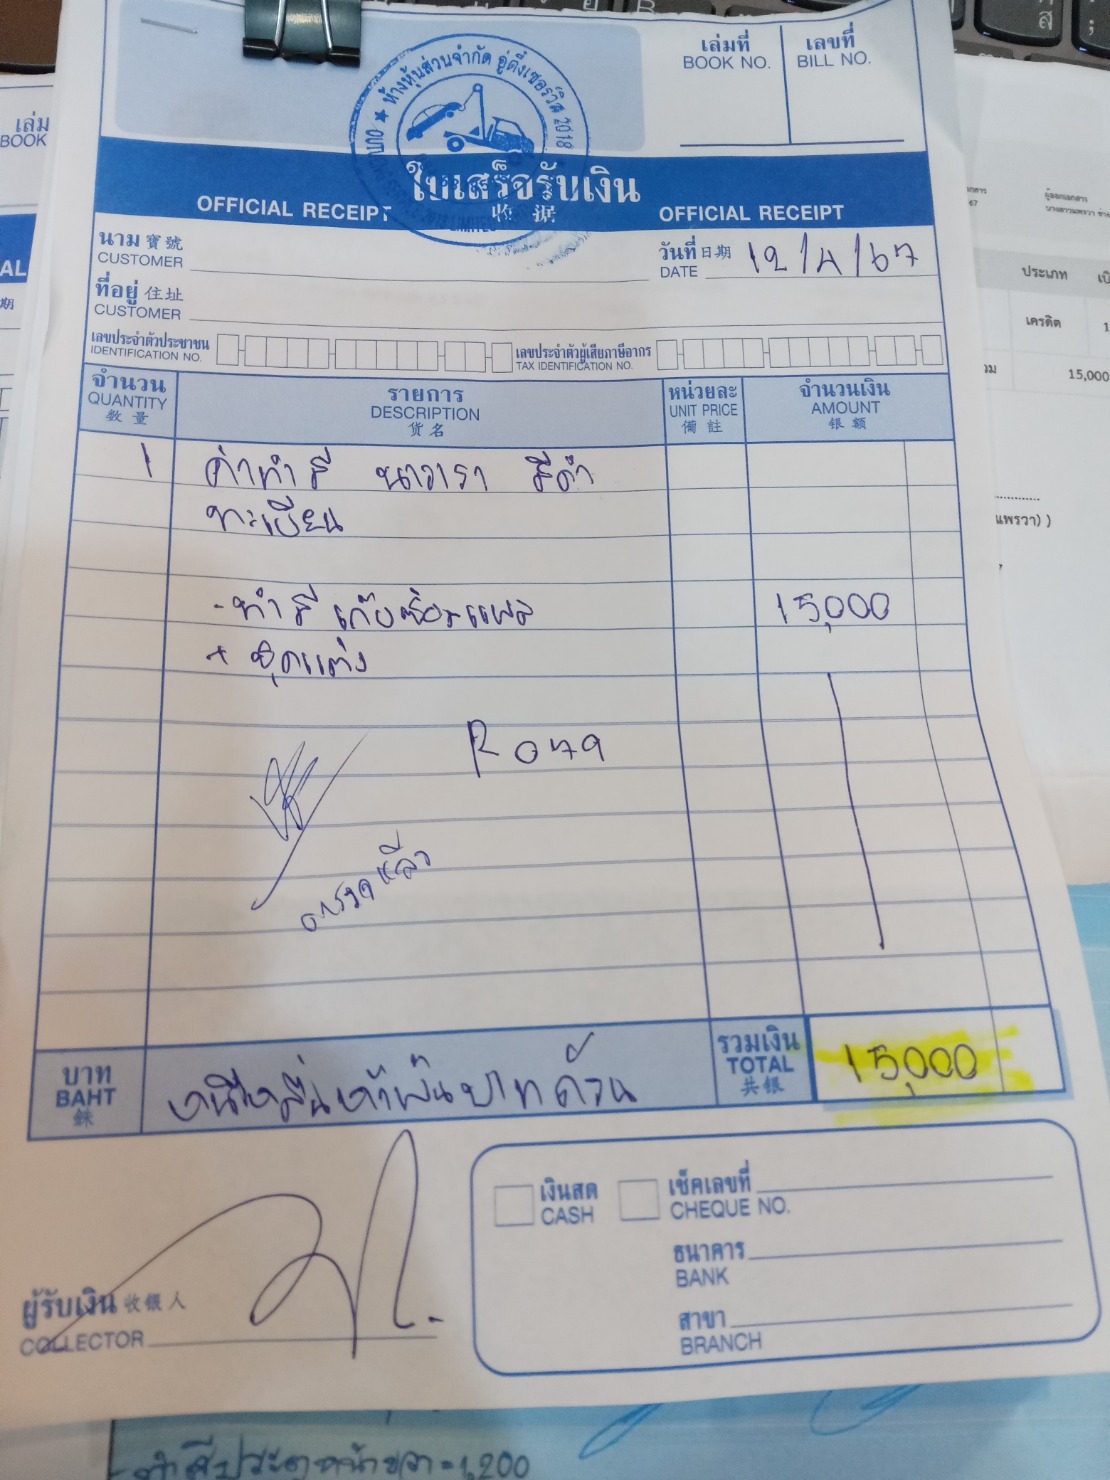 เล่มที่
BOOK NO.
เลขที่
BILL NO.
ห้างหุ้นส่วนจำกัด อู่ตึ๋งเซอร์วิส 2018
ใบเสร็จรับเงิน
OFFICIAL RECEIPT 收据 OFFICIAL RECEIPT
นาม 寶號
CUSTOMER
วันที่ 日期
DATE 12/4/67
ที่อยู่ 住址
CUSTOMER
เลขประจำตัวประชาชน
IDENTIFICATION NO.
เลขประจำตัวผู้เสียภาษีอากร
TAX IDENTIFICATION NO.
จำนวน
QUANTITY
数量
รายการ
DESCRIPTION
货名
หน่วยละ
UNIT PRICE
備註
จำนวนเงิน
AMOUNT
银额
1 ค่าทำสี นาวารา สีดำ
ทะเบียน
- ทำสี เก็บซ่อมแผล 15,000
+ ชุดแต่ง
R079
ตรวจแล้ว
บาท
BAHT
銖
หนึ่งหมื่นห้าพันบาทถ้วน
รวมเงิน
TOTAL
共银
15,000
ผู้รับเงิน 收银人
COLLECTOR
เงินสด
CASH
เช็คเลขที่
CHEQUE NO.
ธนาคาร
BANK
สาขา
BRANCH
เล่ม
BOOK
AL
期
ประเภท
เครดิต
15,000
แพรวา) )
ทำสีประตูหน้าขวา = 1,200